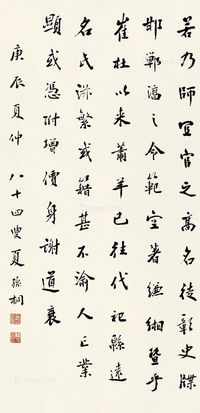 若乃師宜官之高名徒彰史牒
邯鄲淳之令範空著縑緗暨乎
崔杜以來蕭羊已往代祀縣遠
名氏滋繁或籍甚不渝人亡業
顯或憑附增價身謝道衰
庚辰夏仲 八十四叟夏孫桐